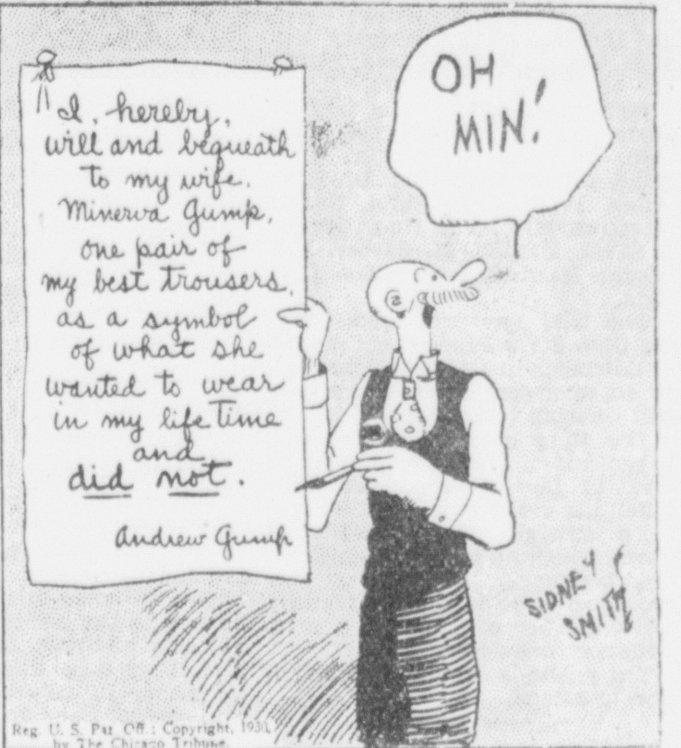 I, hereby,
will and bequeath
to my wife,
Minerva Gump,
one pair of
my best trousers,
as a symbol
of what she
wanted to wear
in my life time
and
did not.
Andrew Gump
OH
MIN!
SIDNEY
SMITH
Reg. U. S. Pat. Off.; Copyright, 1930,
by The Chicago Tribune.